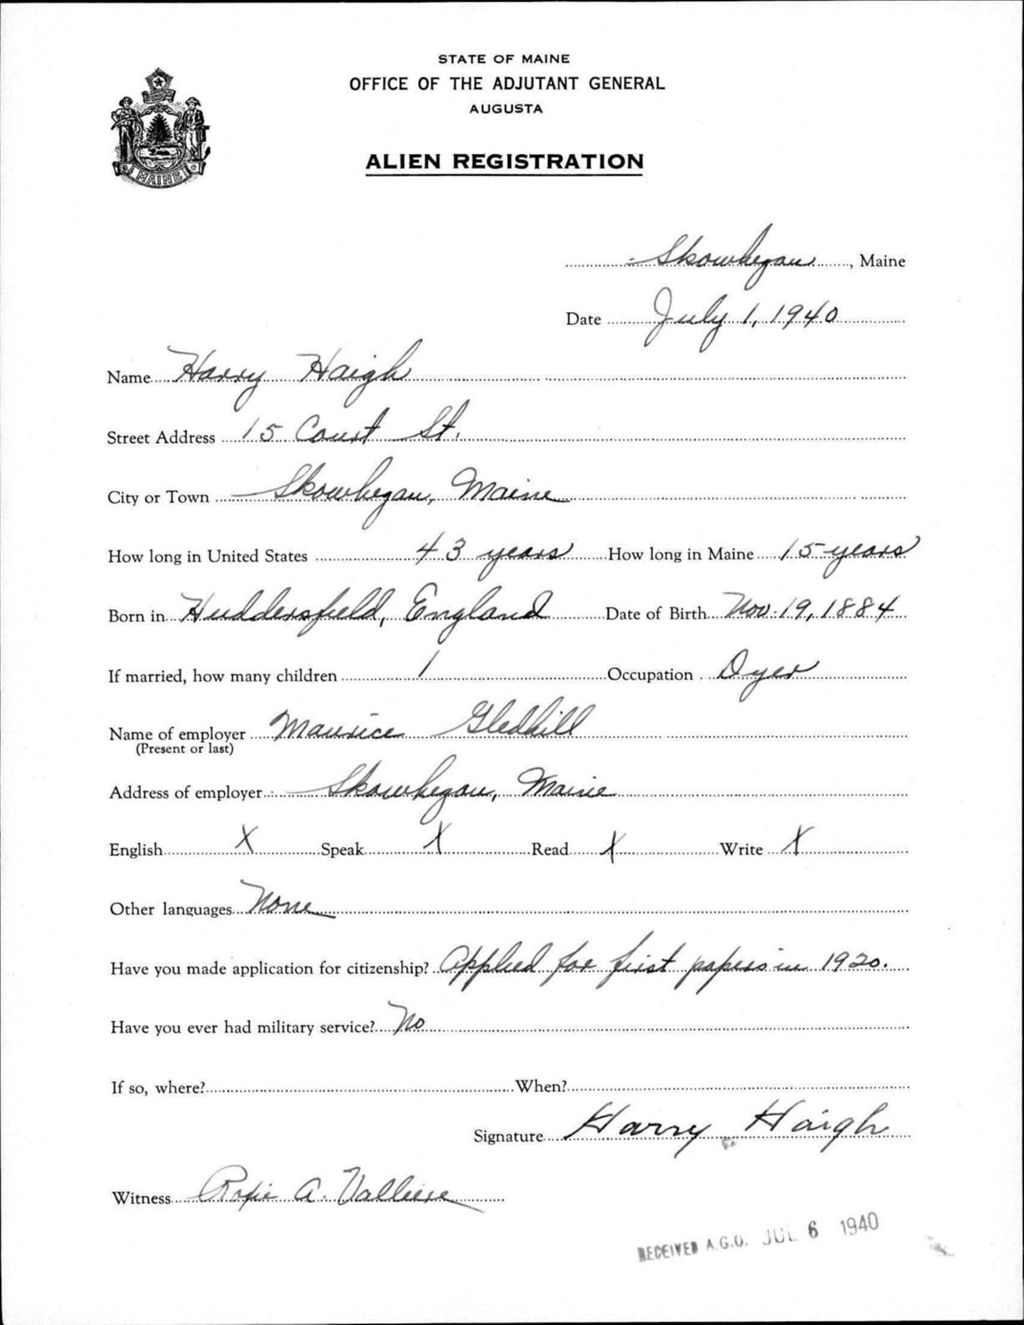 STATE OF MAINE
OFFICE OF THE ADJUTANT GENERAL
AUGUSTA
ALIEN REGISTRATION
MAINE
Skowhegan, Maine
Date July 1, 1940
Name Harry Haigh
Street Address 15 Court St.
City or Town Skowhegan, Maine
How long in United States 43 years How long in Maine 15 years
Born in Huddersfield, England Date of Birth Nov. 19, 1884
If married, how many children 1 Occupation Dyer
Name of employer Maurice Gledhill
(Present or last)
Address of employer Skowhegan, Maine
English X Speak X Read X Write X
Other languages None
Have you made application for citizenship? Applied for first papers in 1920.
Have you ever had military service? No
If so, where? When?
Signature Harry Haigh
Witness A. Valliere
RECEIVED A.G.O. JUL 6 1940